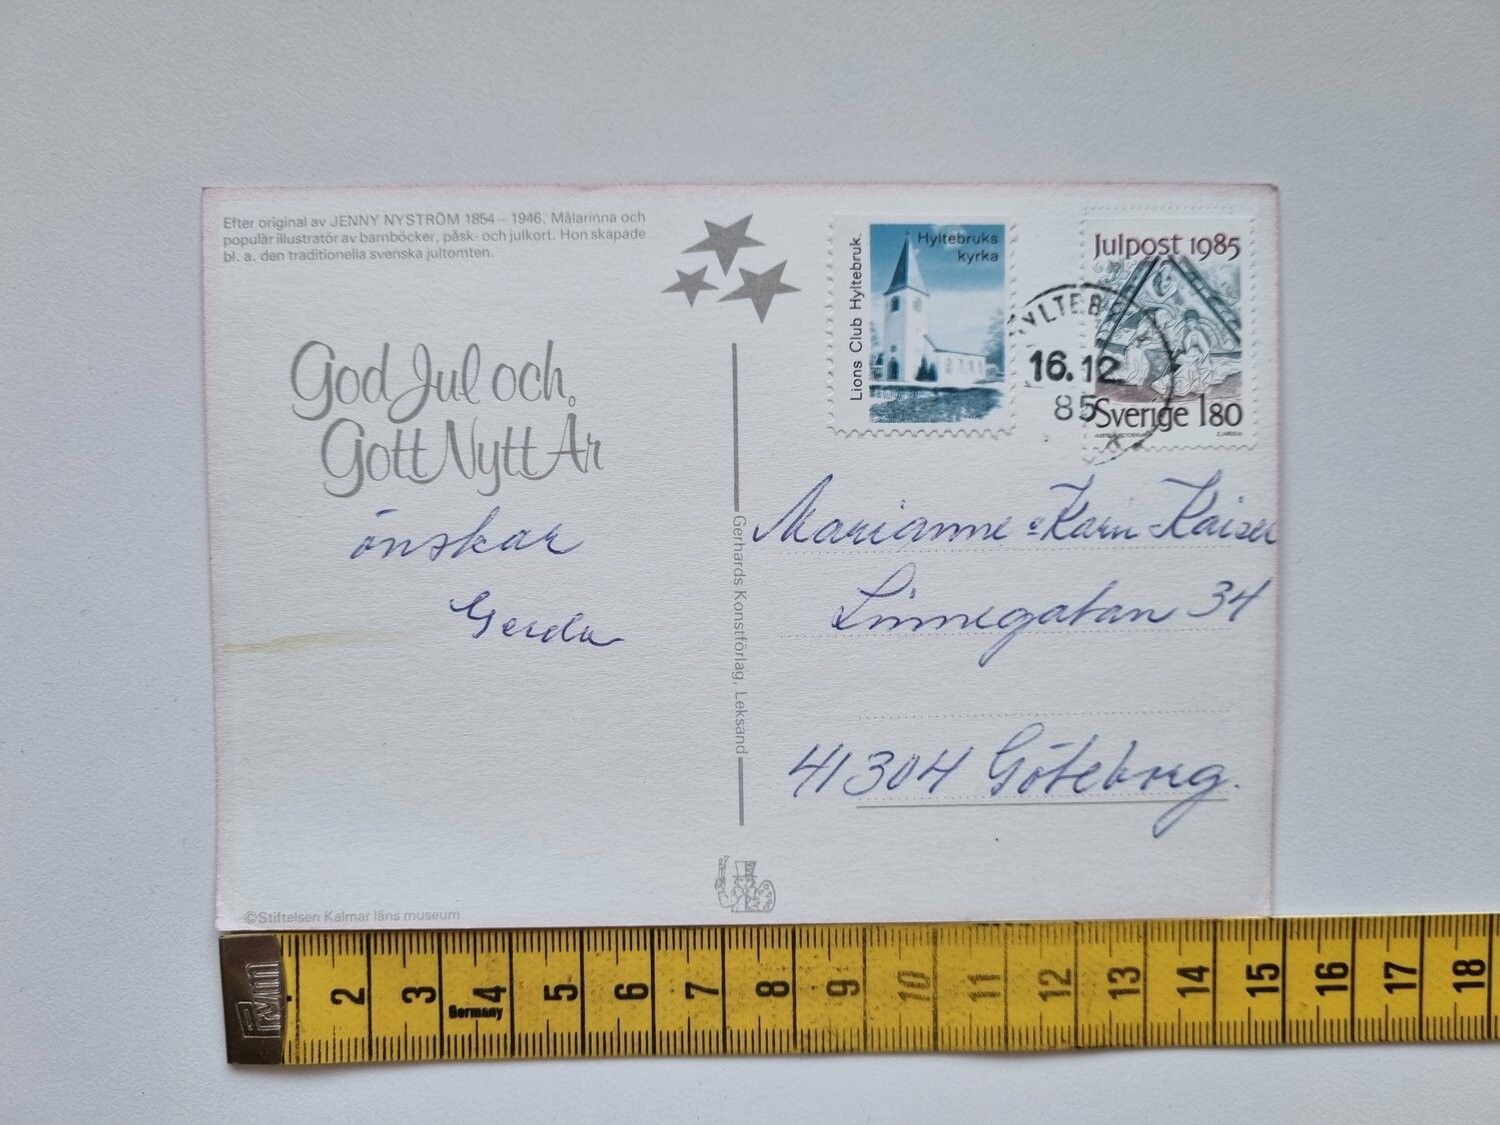 Efter original av JENNY NYSTRÖM 1854 – 1946. Målarinna och
populär illustratör av barnböcker, påsk- och julkort. Hon skapade
bl. a. den traditionella svenska jultomten.
God Jul och
Gott Nytt År
önskar
Gerda
©Stiftelsen Kalmar läns museum
Gerhards Konstförlag, Leksand
Lions Club Hyltebruk.
Hyltebruks
kyrka
16.12
85
Julpost 1985
Sverige 180
Marianne o Karin Kaiser
Linnegatan 34
41304 Göteborg.
2 3 4 5 6 7 8 9 10 11 12 13 14 15 16 17 18
Germany